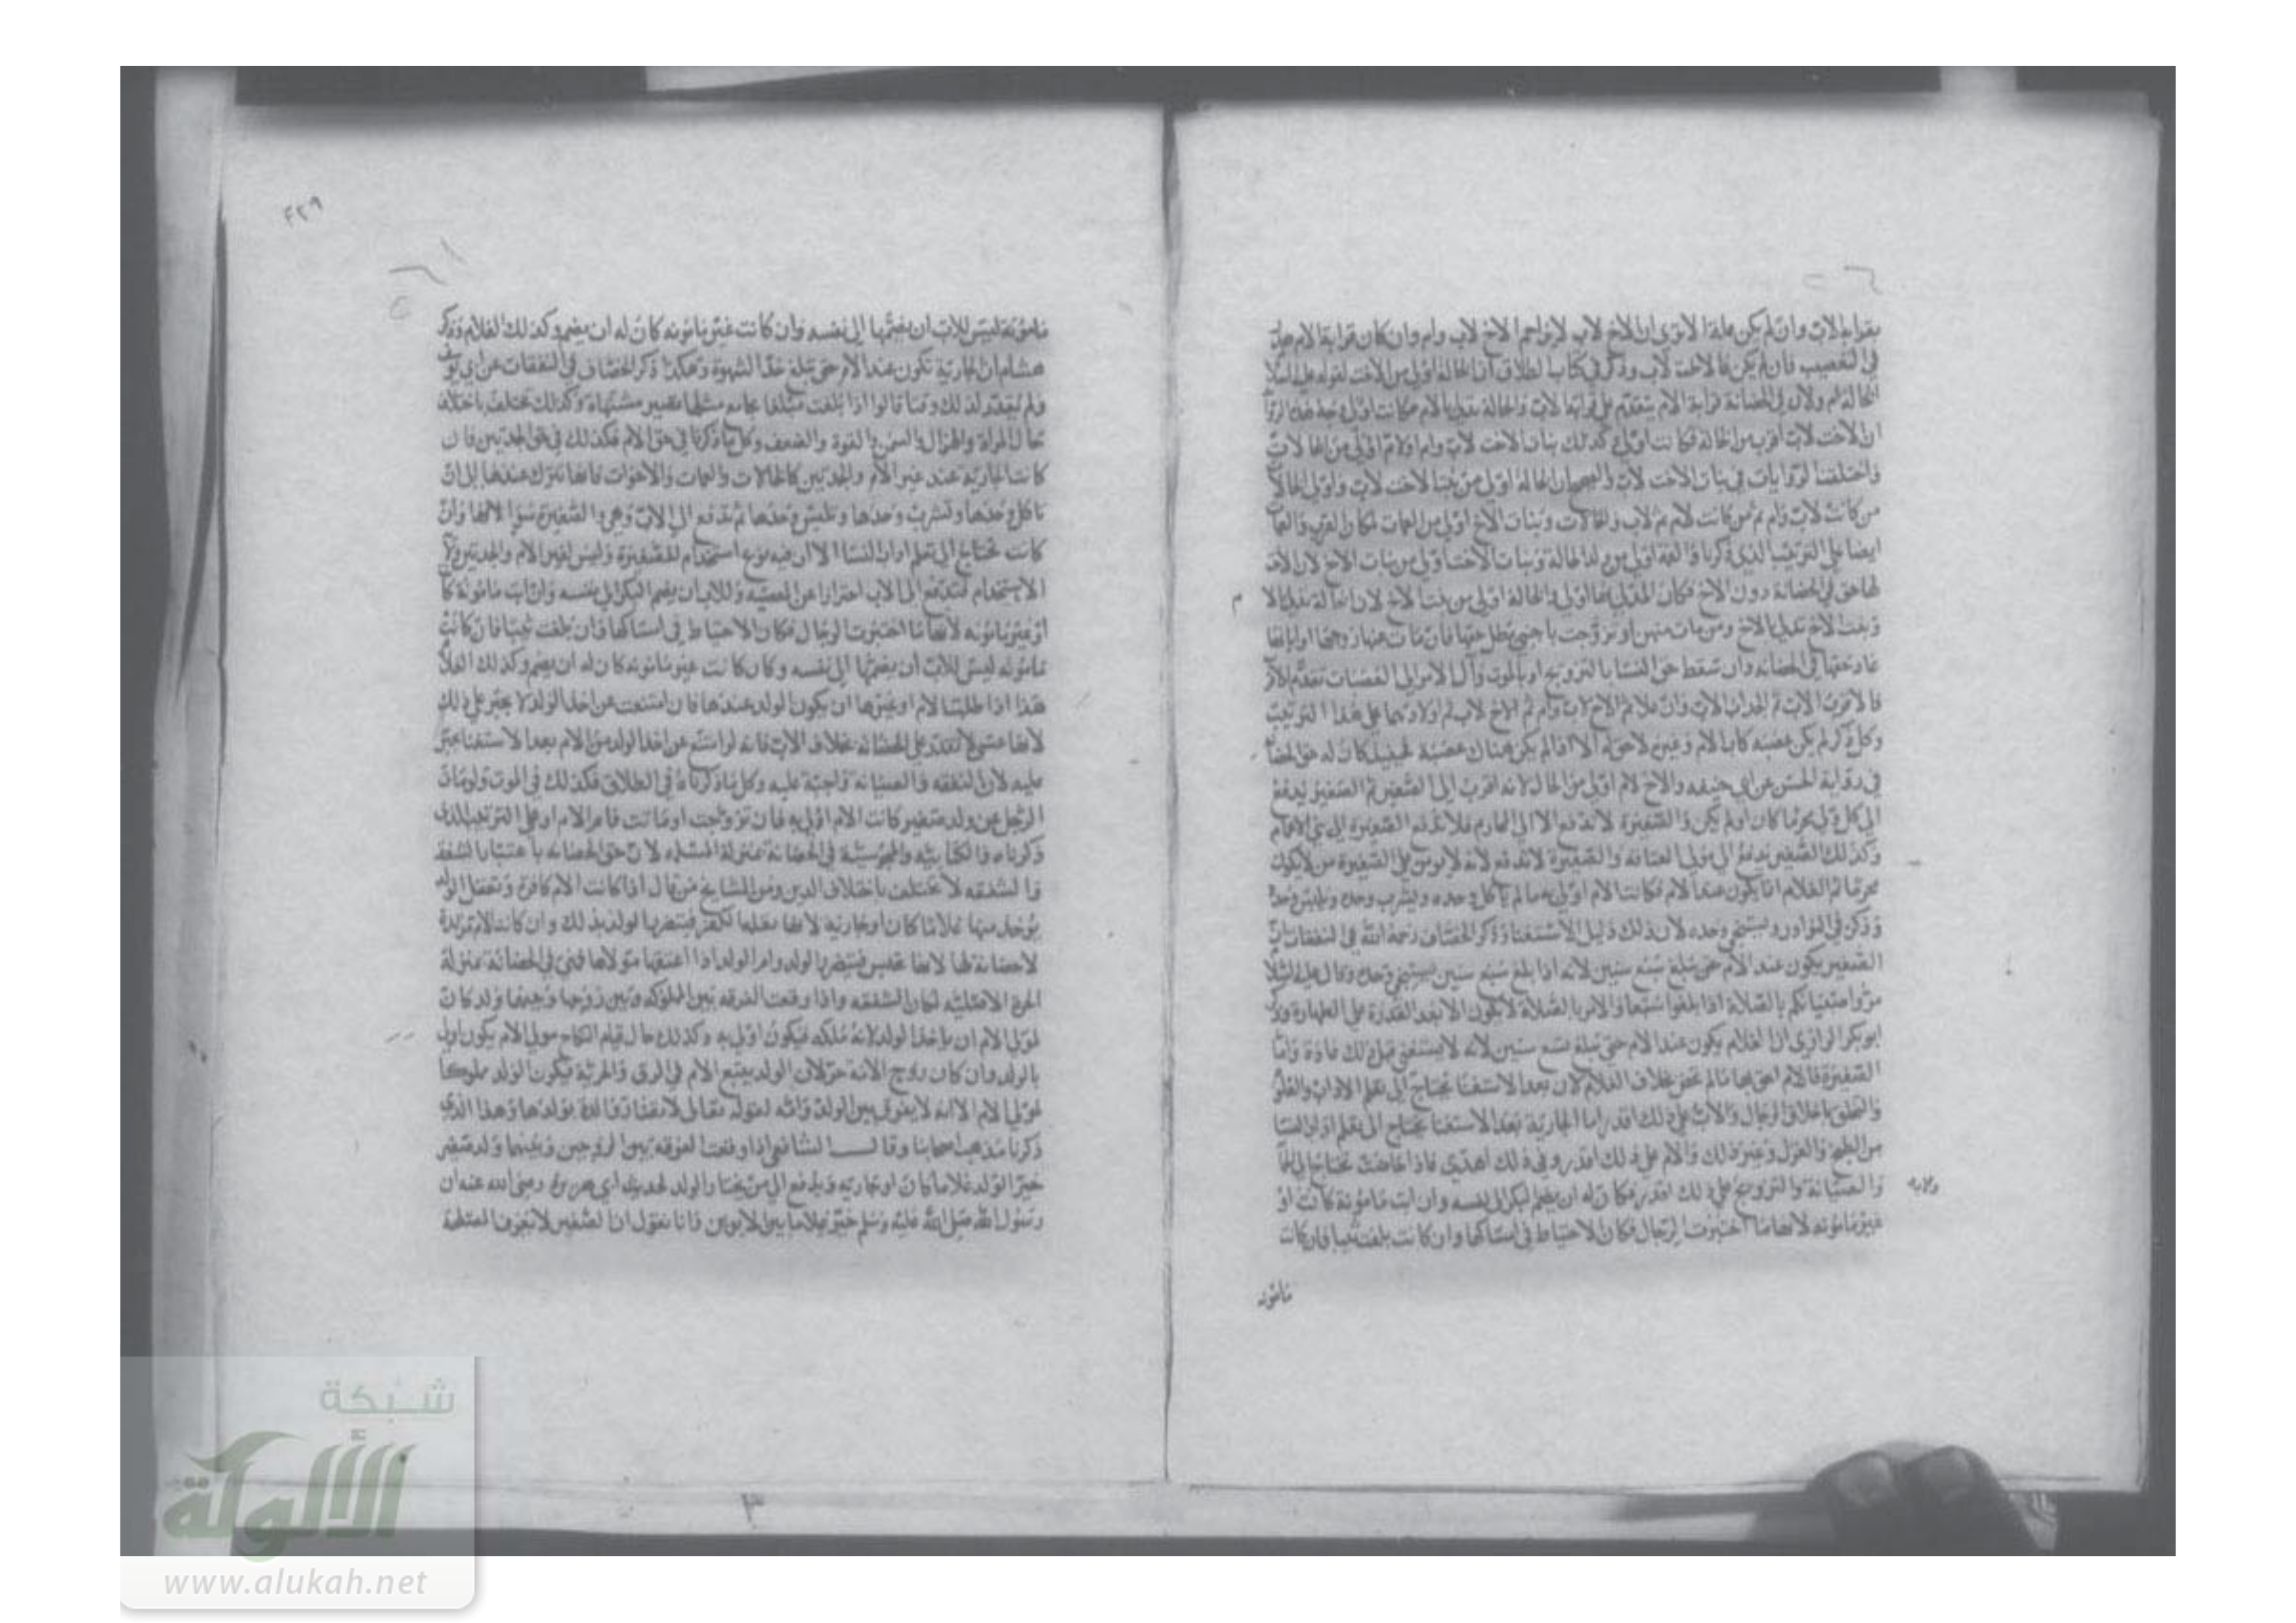 بقرابة الاب وان لم يكن الا ترى ان الاخ لاب لا يزاحم الاخ لاب وام وان كان قرابة الام
في التعصيب فان لم يكن فالاخت لاب وذكر في كتاب الطلاق ان الخالة اولى من الاخت لقوله عليه السلام
الخالة ام ولان في الحضانة قرابة الام تتقدم على قرابة الاب والخالة تدلى بالام فكانت اولى وجه هذه الرواية
ان الاخت لاب اقرب من الخالة فكانت اولى وكذلك بنات الاخت لاب وام اولام اولى من الخالات
واختلفت الروايات في بنات الاخت لاب والصحيح ان الخالة اولى من بنت الاخت لاب واولى الخالات
من كانت لاب وام ثم من كانت لام ثم لاب والخالات وبنات الاخ اولى من العمات لمكان القرب والعمات
ايضا على الترتيب الذي ذكرنا والعمة اولى من ولد الخالة وبنات الاخت اولى من بنات الاخ لان الاخت
لها حق في الحضانة دون الاخ فكان المدلي بها اولى والخالة اولى من بنت الاخ لان الخالة تدلى بالام
وبنت الاخ تدلى بالاخ ومن مات منهن او تزوجت باجنبي بطل حقها فان مات عنها زوجها او ابانها
عاد حقها في الحضانة وان سقط حق النسا بالتزويج او بالموت وآل الامر الى العصبات تقدم الاقرب
فالاقرب الاب ثم الجد اب الاب وان علا ثم الاخ لاب وام ثم الاخ لاب ثم اولادهما على هذا الترتيب
وكل ذكر لم يكن عصبة كاب الام وغيره لاحق له الا اذا لم يكن هناك عصبة فحينئذ كان له حق الحضانة
في رواية الحسن عن ابي حنيفه والاخ لام اولى من الخال لانه اقرب الى الصغير ثم الصغير يدفع
الى كل ولي محرما كان اولم يكن والصغيرة لا تدفع الا الى المحارم فلا تدفع الصغيرة الى بني الاعمام
وكذلك الصغير يدفع الى مولى العتاقه والصغيرة لا تدفع لانه لا يؤمن على الصغيرة من لا يكون
محرما ثم الغلام انما يكون عند الام فكانت الام اولى به ما لم ياكل وحده ويشرب وحده ويلبس وحده
وذكر في النوادر ويستنجي وحده لان ذلك دليل الاستغنا وذكر الخصاف رحمه الله في النفقات ان
الصغير يكون عند الام حتى يبلغ سبع سنين لانه اذا بلغ سبع سنين يستنجي وحده وقال عليه السلام
مروا صبيانكم بالصلاة اذا بلغوا سبعا والامر بالصلاة لا يكون الا بعد القدرة على الطهارة وذكر
ابو بكر الرازي ان الغلام يكون عند الام حتى يبلغ تسع سنين لانه لا يستغني قبل ذلك عادة واما
الصغيرة فالام احق بها ما لم تحض بخلاف الغلام لان بعد الاستغنا يحتاج الى تعلم الاداب والعلوم
والتخلق باخلاق الرجال والاب على ذلك اقدر اما الجارية بعد الاستغنا تحتاج الى تعلم اداب النسا
من الطبخ والغزل وغير ذلك والام على ذلك اقدر وفي ذلك اهدى فاذا حاضت تحتاج الى
والصيانة والتزويج والاب على ذلك اقدر فكان له ان يضم البكر الى نفسه وان ابت مامونة كانت او
غير مامونه لانها ما اختبرت الرجال فكان الاحتياط في امساكها وان كانت بلغت ثيبا فان كانت
مامونه
مامونة ليس للاب ان يضمها الى نفسه وان كانت غير مامونه كان له ان يضم وكذلك الغلام وذكر
هشام ان الجارية تكون عند الام حتى تبلغ حدا الشهوة وهكذا ذكر الخصاف في النفقات عن ابي يوسف
ولم يقدر لذلك وقتا قالوا اذا بلغت مبلغا يجامع مثلها تصير مشتهاة وكذلك تختلف باختلاف
حال المراة والهزال والسمن والقوة والضعف وكل ما ذكرنا في حق الام فكذلك في حق الجدتين فان
كانت الجارية عند غير الام والجدتين كالخالات والعمات والاخوات فانها تترك عندها الى ان
تاكل وحدها وتشرب وحدها وتلبس وحدها ثم تدفع الى الاب وهي والصغير سوا لانها وان
كانت تحتاج الى تعلم اداب النسا الا ان فيه نوع استخدام للصغيرة وليس لغير الام والجدتين ولاية
الاستخدام فتدفع الى الاب احترازا عن المعصيه وللاب ان يضم البكر الى نفسه وان ابت مامونة كانت
او غير مامونه لانها ما اختبرت الرجال فكان الاحتياط في امساكها وان بلغت ثيبا فان كانت
مامونه ليس للاب ان يضمها الى نفسه وكان كانت غير مامونه كان له ان يضم وكذلك الغلام
هذا اذا طلبت الام او غيرها ان يكون الولد عندها فان امتنعت عن اخذ الولد لا يجبر على ذلك
لانها عسى لا تقدر على الحضانه بخلاف الاب فانه لو امتنع عن اخذ الولد من الام بعد الاستغنا يجبر
عليه لان النفقه والصيانه واجبة عليه وكل ما ذكرناه في الطلاق فكذلك في الموت ولو مات
الرجل عن ولد صغير كانت الام اولى به فان تزوجت او ماتت فام الام او على الترتيب الذي
ذكرناه والكتابيه والمجوسية في الحضانة بمنزلة المسلمه لان حق الحضانه باعتبار الشفقه
والشفقه لا تختلف باختلاف الدين ومن المشايخ من قال اذا كانت الام كافرة وتعقل الولد
يؤخذ منها غلاما كان او جارية لانها تعلمها الكفر فيتضرر الولد بذلك وان كانت الام مرتدة
لا حضانة لها لانها تحبس فيتضرر الولد وام الولد اذا اعتقها مولاها فهي في الحضانة بمنزلة
الحرة الاصليه لمكان الشفقه واذا وقعت الفرقه بين المملوكه وبين زوجها وبينهما ولد كان
لمولى الام ان ياخذ الولد لانه ملكه فيكون اولى به وكذلك حال قيام النكاح مولى الام يكون اولى
بالولد وان كان زوج الامة حر لان الولد يتبع الام في الرق والحرية فيكون الولد مملوكا
لمولى الام الا انه لا يفرق بين الولد وامه لقوله تعالى لا تضار والدة بولدها وهذا الذي
ذكرنا مذهب اصحابنا وقال الشافعي اذا وقعت الفرقه بين الزوجين وبينهما ولد صغير
خير الولد غلاما كان او جاريه ويدفع الى من يختار الولد لحديث ابي هريرة رضي الله عنه ان
رسول الله صلى الله عليه وسلم خير غلاما بين الابوين وانا نقول ان الصغير لا يعرف المصلحة
٤٢٩
شبكة
الألوكة
www.alukah.net